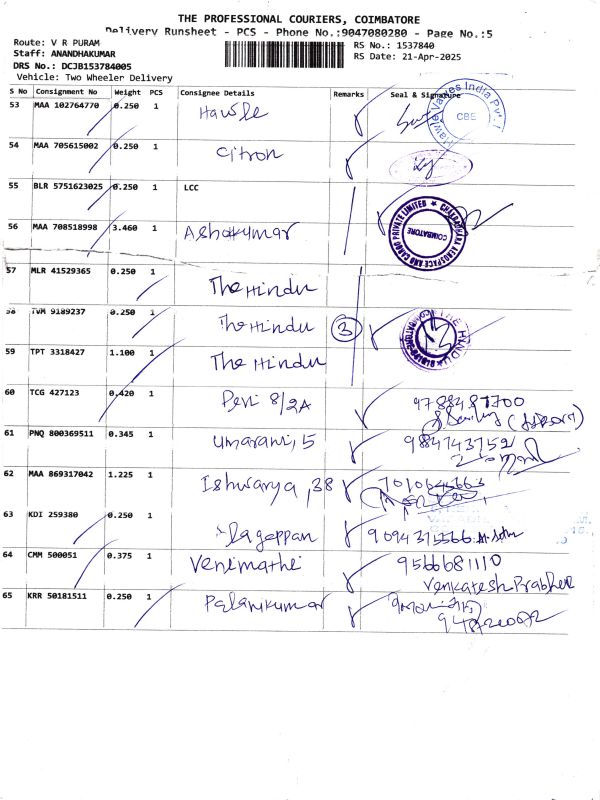 THE PROFESSIONAL COURIERS, COIMBATORE
Delivery Runsheet - PCS - Phone No.:9047080280 - Page No.:5
Route: V R PURAM
Staff: ANANDHAKUMAR
DRS No.: DCJB153784005
Vehicle: Two Wheeler Delivery
RS No.: 1537840
RS Date: 21-Apr-2025
S No Consignment No Weight PCS Consignee Details Remarks Seal & Signature
53 MAA 102764770 0.250 1 Hawle
CBE
54 MAA 705615002 0.250 1 Citron
55 BLR 5751623025 0.250 1 LCC
56 MAA 708518998 3.460 1 Ashokumar
COIMBATORE
57 MLR 41529365 0.250 1 The Hindu
58 TVM 9189237 0.250 1 The Hindu 3
THE HINDU
59 TPT 3318427 1.100 1 The Hindu
60 TCG 427123 0.420 1 Devi 8/2A
61 PNQ 800369511 0.345 1 Umarani, 5 9884743752
62 MAA 869317042 1.225 1 Ishwarya, 38
63 KDI 259380 0.250 1
64 CMM 500051 0.375 1 Venimathi 9566681110
Venkatesh Prabhu
65 KRR 50181511 0.250 1 Palanikumar